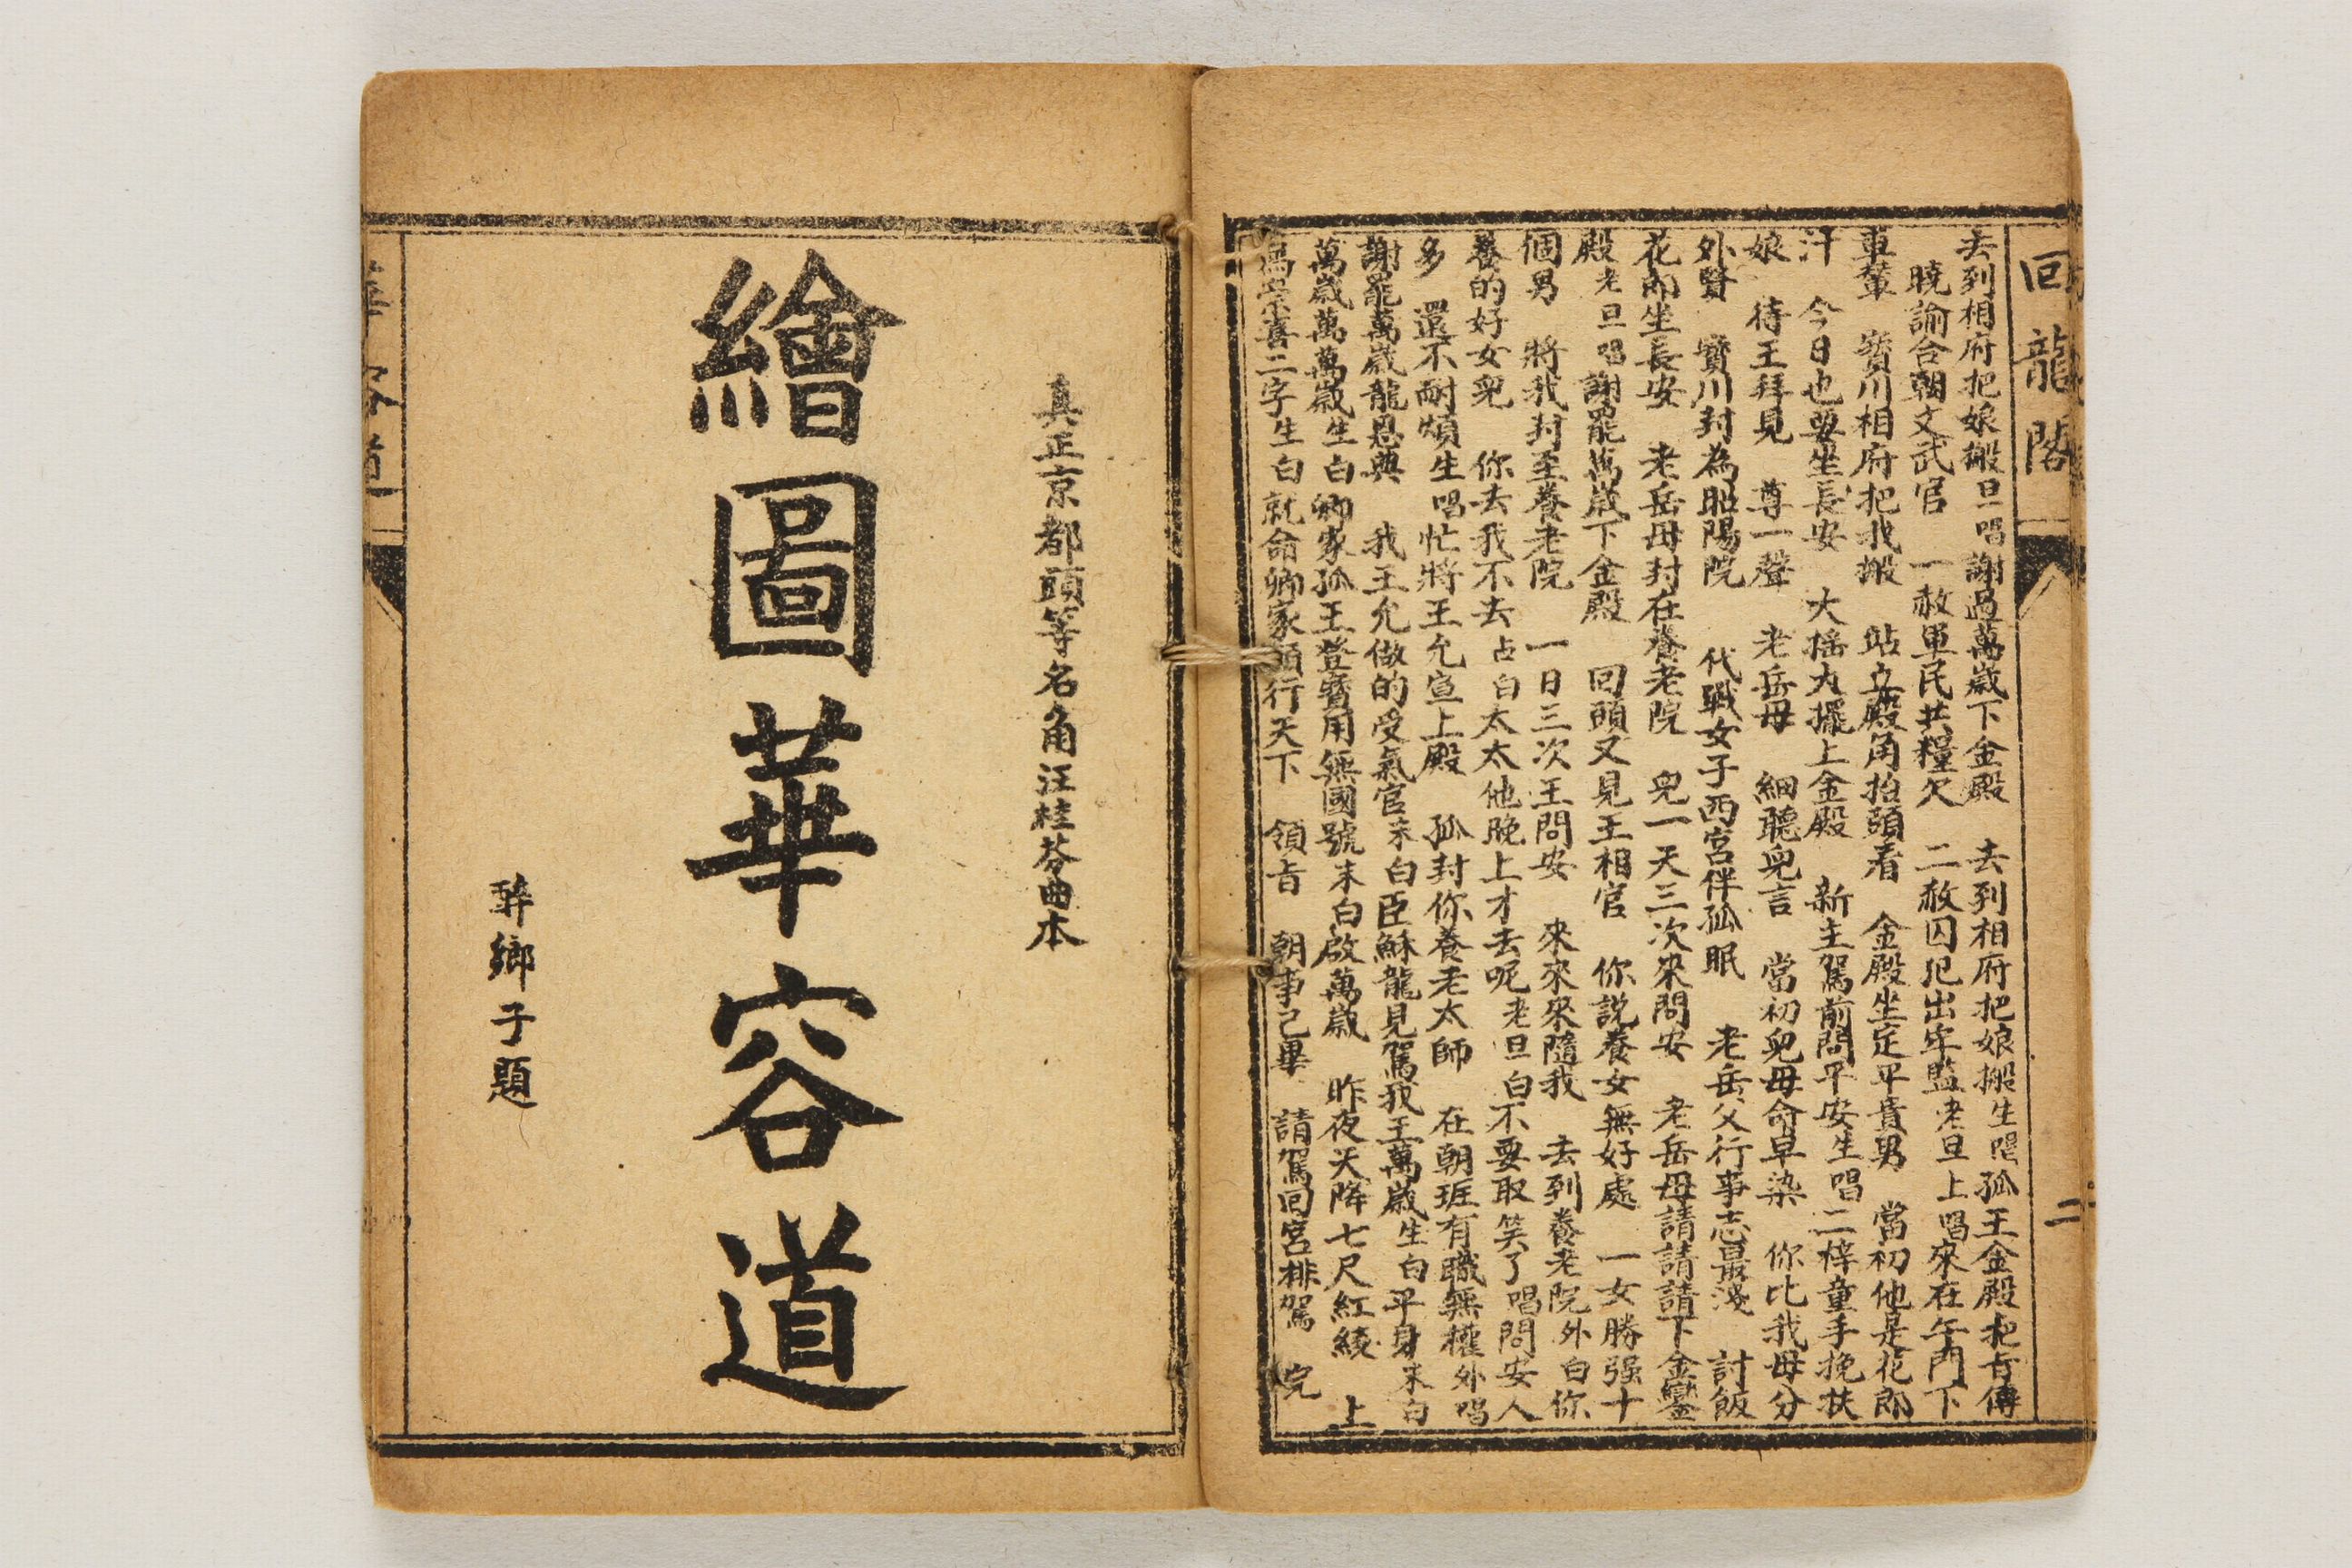 回龍閣
二
去到相府把娘搬旦唱謝過萬歲下金殿 去到相府把娘搬生唱孤王金殿把旨傳
曉諭合朝文武官 一赦軍民共糧欠 二赦囚犯出牢監老旦上唱來在午門下
車輦 寶川相府把我搬 站立殿角抬頭看 金殿坐定平貴男 當初他是花郎
汗 今日也要坐長安 大搖大擺上金殿 新主駕前問平安生唱二梓童手挽扶
娘 待王拜見 尊一聲 老岳母 細聽兒言 當初兒母命早染 你比我母分
外賢 寶川封為昭陽院 代戰女子西宮伴孤眠 老岳父行事志最淺 討飯
花郎坐長安 老岳母封在養老院 兒一天三次來問安 老岳母請請請下金鑾
殿老旦唱謝罷萬歲下金殿 回頭又見王相官 你說養女無好處 一女勝强十
個男 將我封至養老院 一日三次王問安 來來來隨我 去到養老院外白你
養的好女兒 你去我不去占白太太他晚上才去呢老旦白不要取笑了唱問安人
多 還不耐煩生唱忙將王允宣上殿 孤封你養老太師 在朝班有職無權外唱
謝罷萬歲龍恩典 我王允做的受氣官末白臣穌龍見駕我王萬歲生白平身末白
萬歲萬萬歲生白卿家孤王登寶用無國號末白啟萬歲 昨夜天降七尺紅綾 上
喜二字生白就命卿家頒行天下 領旨 朝事己畢 請駕回宮排駕 完
真正京都頭等名角汪桂芬曲本
繪圖華容道
醉鄉子題